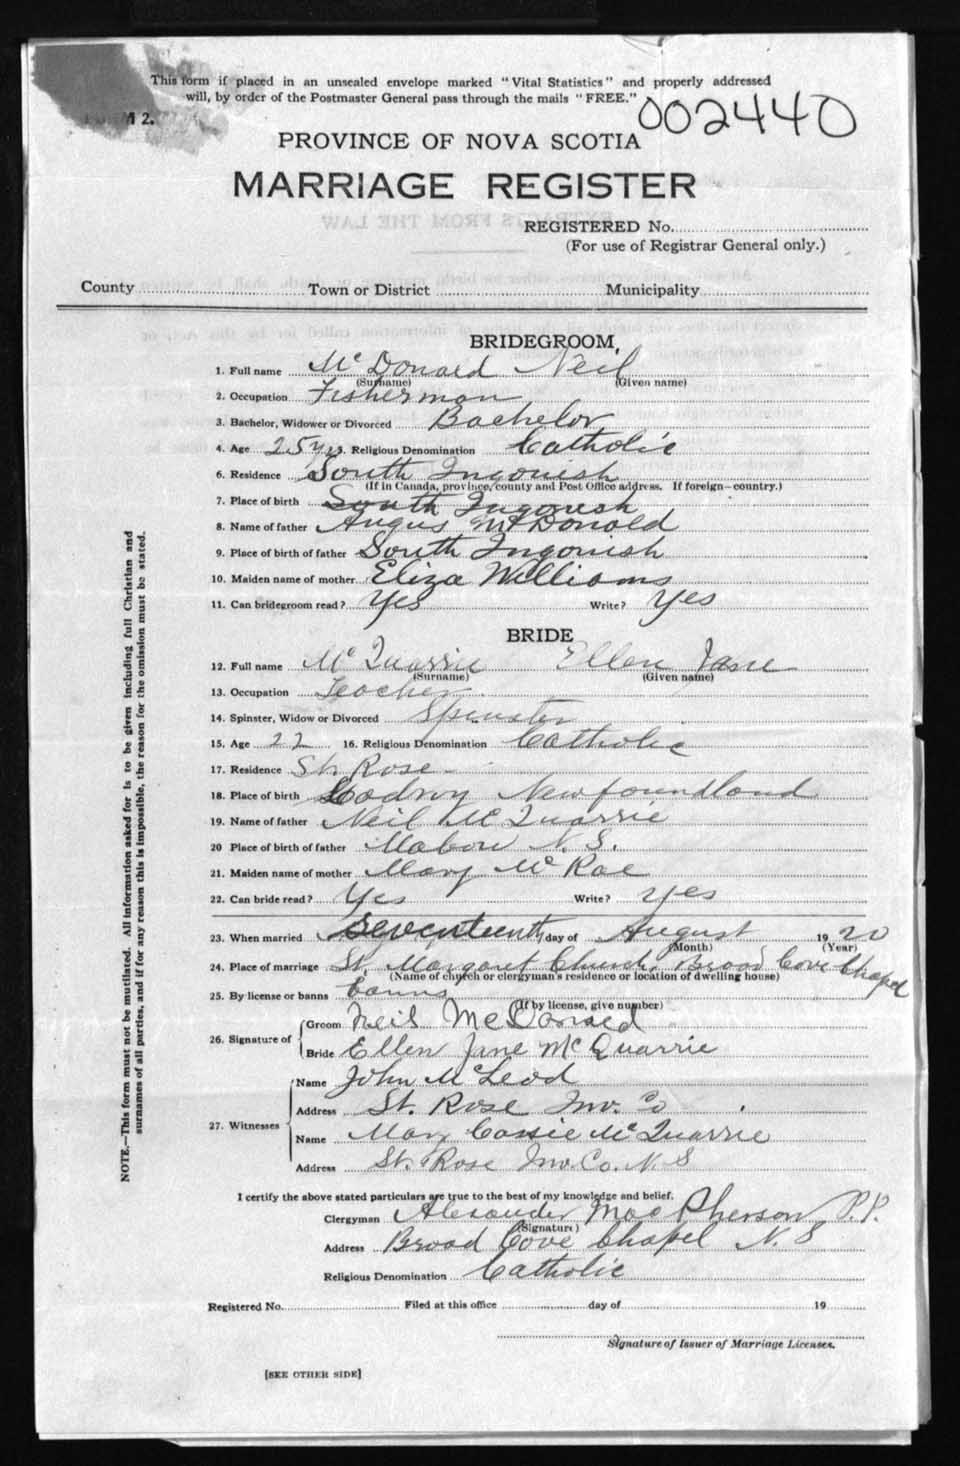 This form if placed in an unsealed envelope marked "Vital Statistics" and properly addressed
will, by order of the Postmaster General pass through the mails "FREE."
002440
M 2.
PROVINCE OF NOVA SCOTIA
MARRIAGE REGISTER
EXTRACTS FROM THE LAW
REGISTERED No.
(For use of Registrar General only.)
County Town or District Municipality
BRIDEGROOM,
1. Full name McDonard Neil
(Surname) (Given name)
2. Occupation Fisherman
3. Bachelor, Widower or Divorced Bachelor
4. Age 25 yrs. Religious Denomination Catholic
6. Residence South Ingonish
(If in Canada, province, county and Post Office address. If foreign—country.)
7. Place of birth South Ingonish
8. Name of father Angus McDonald
9. Place of birth of father South Ingonish
10. Maiden name of mother Eliza Williams
11. Can bridegroom read? Yes Write? Yes
BRIDE
12. Full name McQuarrie Ellen Jane
(Surname) (Given name)
13. Occupation Teacher
14. Spinster, Widow or Divorced Spinster
15. Age 22 16. Religious Denomination Catholic
17. Residence St. Rose
18. Place of birth Codroy Newfoundland
19. Name of father Neil McQuarrie
20 Place of birth of father Mabou N. S.
21. Maiden name of mother Mary McRae
22. Can bride read? Yes Write? Yes
23. When married Seventeenth day of August 1920
(Month) (Year)
24. Place of marriage St. Margaret Church, Broad Cove Chapel
(Name of church or clergyman's residence or location of dwelling house)
25. By license or banns banns
(If by license, give number)
26. Signature of Groom Neil McDonald
Bride Ellen Jane McQuarrie
27. Witnesses Name John McLeod
Address St. Rose Inv. Co
Name Mary Cassie McQuarrie
Address St. Rose Inv. Co. N. S
I certify the above stated particulars are true to the best of my knowledge and belief.
Clergyman Alexander MacPherson P.P.
(Signature)
Address Broad Cove Chapel N. S
Religious Denomination Catholic
Registered No. Filed at this office day of 19
Signature of Issuer of Marriage Licenses.
[SEE OTHER SIDE]
NOTE.—This form must not be mutilated. All information asked for is to be given including full Christian and
surnames of all parties, and if for any reason this is impossible, the reason for the omission must be stated.